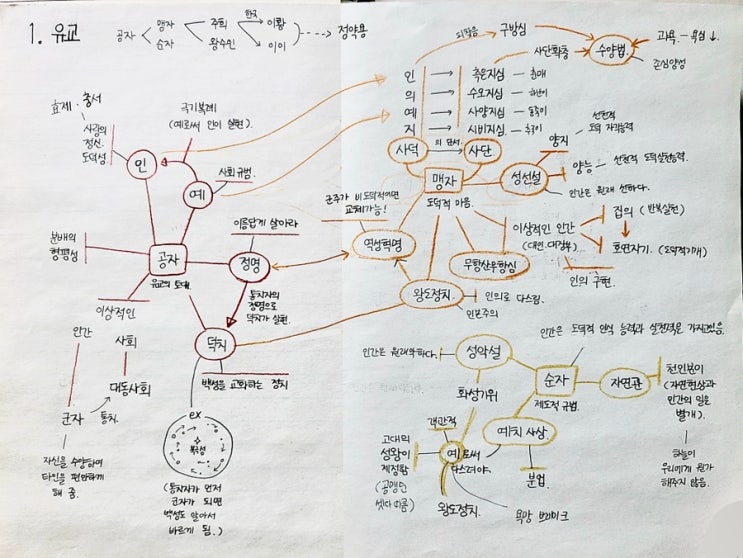 1. 유교
공자
맹자
순자
주희
왕수인
한국
이황
이이
정약용
효제, 충서
사람의
정신.
도덕성
인
극기복례
(예로써 인이 실현)
예
사회 규범.
분배의
형평성
공자
유교의 토대.
이름답게 살아라
정명
통치자의
정명으로
덕치가 실현.
덕치
백성을 교화하는 정치
이상적인
인간
사회
대동사회
군자
통치.
자신을 수양하여
타인을 편안하게
해 줌.
ex
북극성
(통치자가 먼저
군자가 되면
백성도 알아서
바르게 됨.)
인
의
예
지
측은지심
수오지심
사양지심
시비지심
사덕
의 단서.
사단
되찾음
구방심
사단확충
수양법.
과욕. - 욕심 ↓.
존심양성
맹자
도덕적 마음.
성선설
인간은 원래 선하다.
양지
선천적
도덕 자각능력
양능
선천적 도덕실천능력.
군주가 비도덕적이면
교체가능!
역성혁명
무항산무항심
이상적인 인간
(대인. 대장부)
집의 (반복실천)
호연지기. (도덕적기개)
인의 구현.
왕도정치.
인의로 다스림.
인본주의
인간은 도덕적 인식 능력과 실천력은 가지고있음.
인간은 원래악하다.
성악설
순자
제도적 규범.
자연관
천인분이
(자연현상과
인간의 일은
별개.)
하늘이
우리에게 뭔가
해주지 않음.
화성기위
예치 사상.
분업.
객관적
예로써
다스려야.
고대의
성왕이
제정함
(공맹순
셋다 따름)
왕도정치.
욕망 브레이크